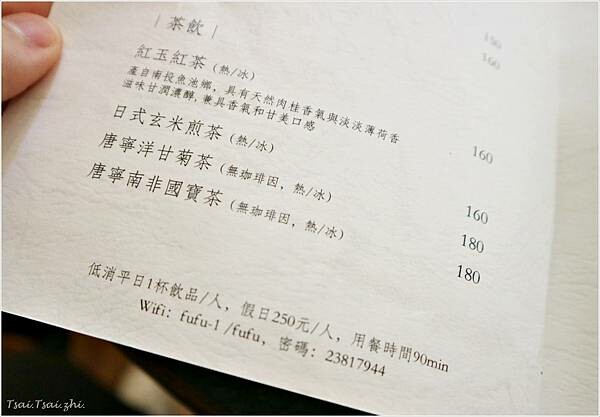 ｜茶飲｜
150
160
紅玉紅茶（熱/冰）
產自南投魚池鄉，具有天然肉桂香氣與淡淡薄荷香
滋味甘潤濃醇，兼具香氣和甘美口感
160
日式玄米煎茶（熱/冰）
160
唐寧洋甘菊茶（無珈琲因，熱/冰）
180
唐寧南非國寶茶（無珈琲因，熱/冰）
180
低消平日1杯飲品/人，假日250元/人，用餐時間90min
Wifi：fufu-1 /fufu，密碼：23817944
Tsai.Tsai.zhi.